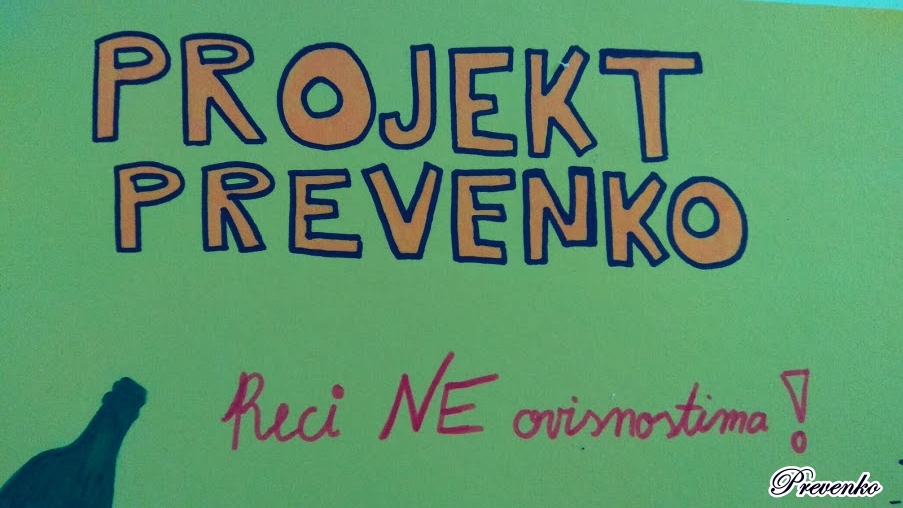 PROJEKT
PREVENKO
Reci NE ovisnostima!
Prevenko